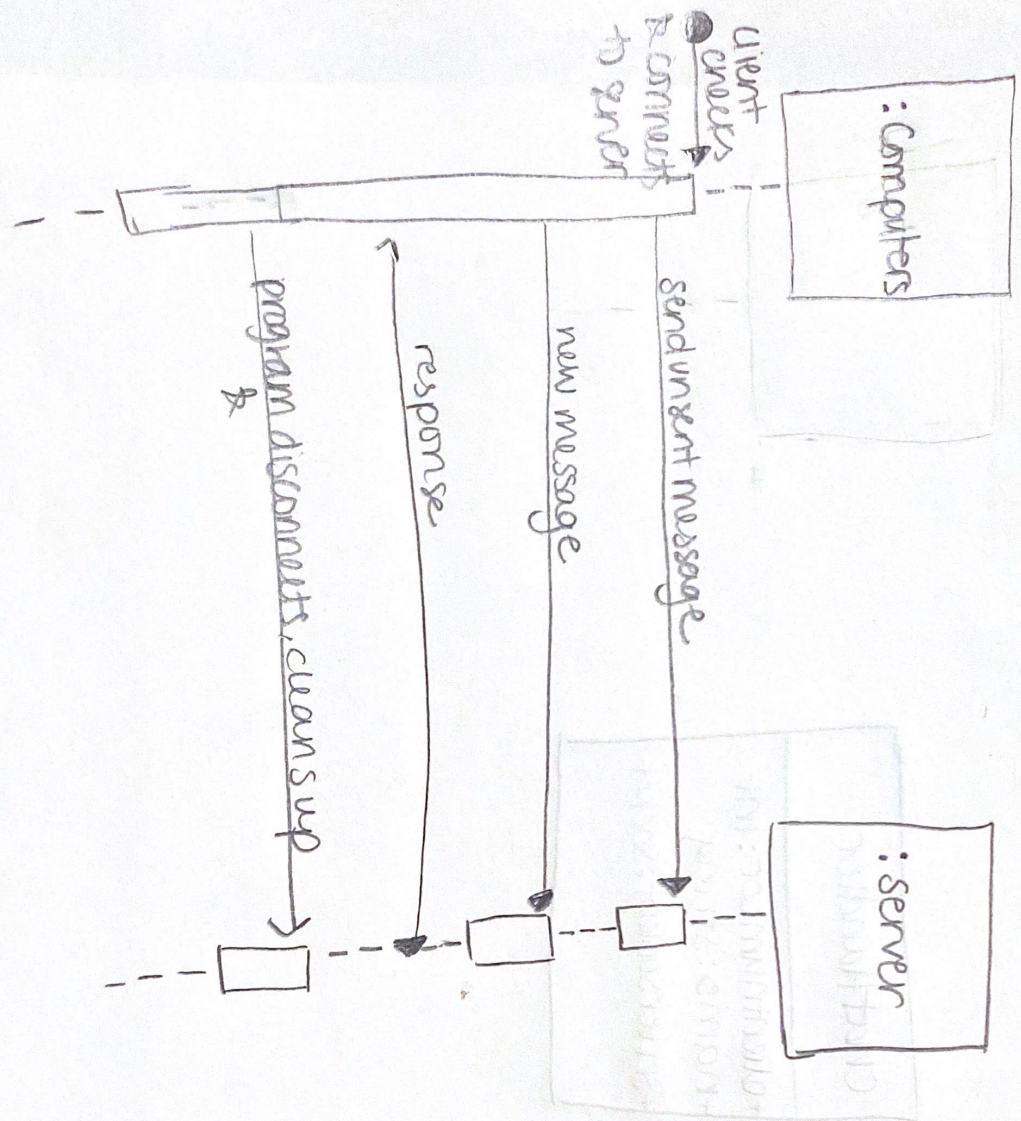 :Computers
:server
client
checks
& connects
to server
send unsent message
new message
response
program disconnects, cleans up
&